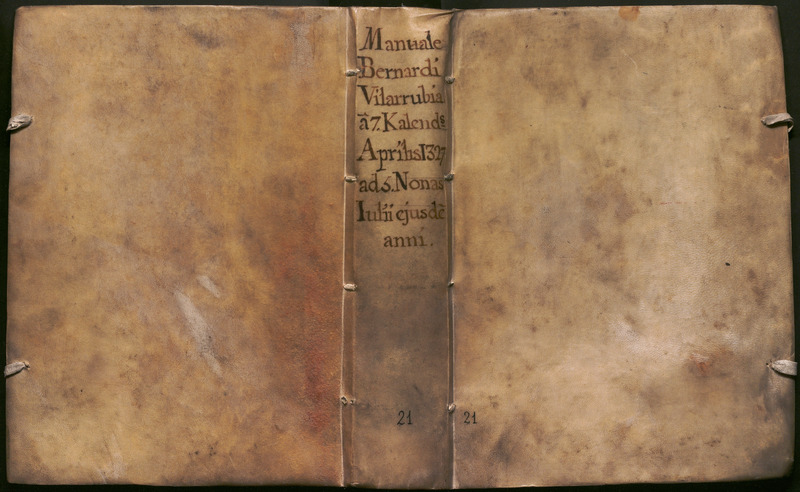 Manuale
Bernardi
Vilarrubia
ā 7. Kalends
Aprilis 1327
ad 5. Nonas
Iulii ejusdē
anni.
21
21